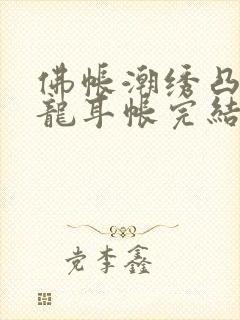 佛帐潮绣凸
龍耳帐完結
党李鑫